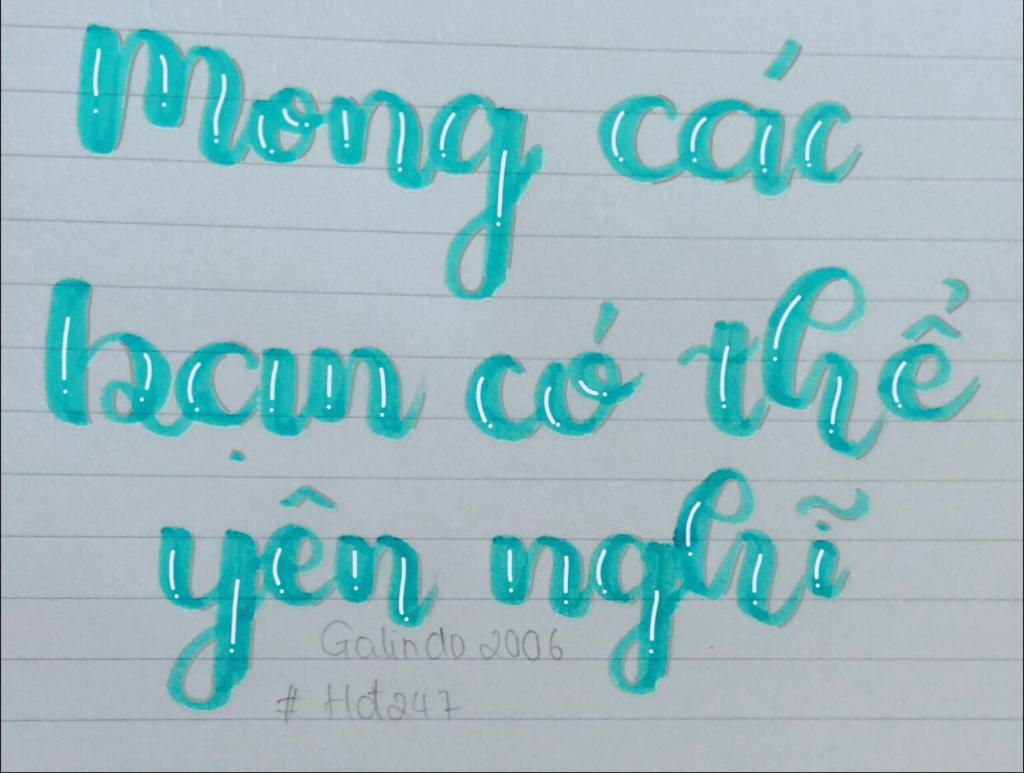 Mong các
bạn có thể
yên nghĩ
Galindo 2006
# Hđ247